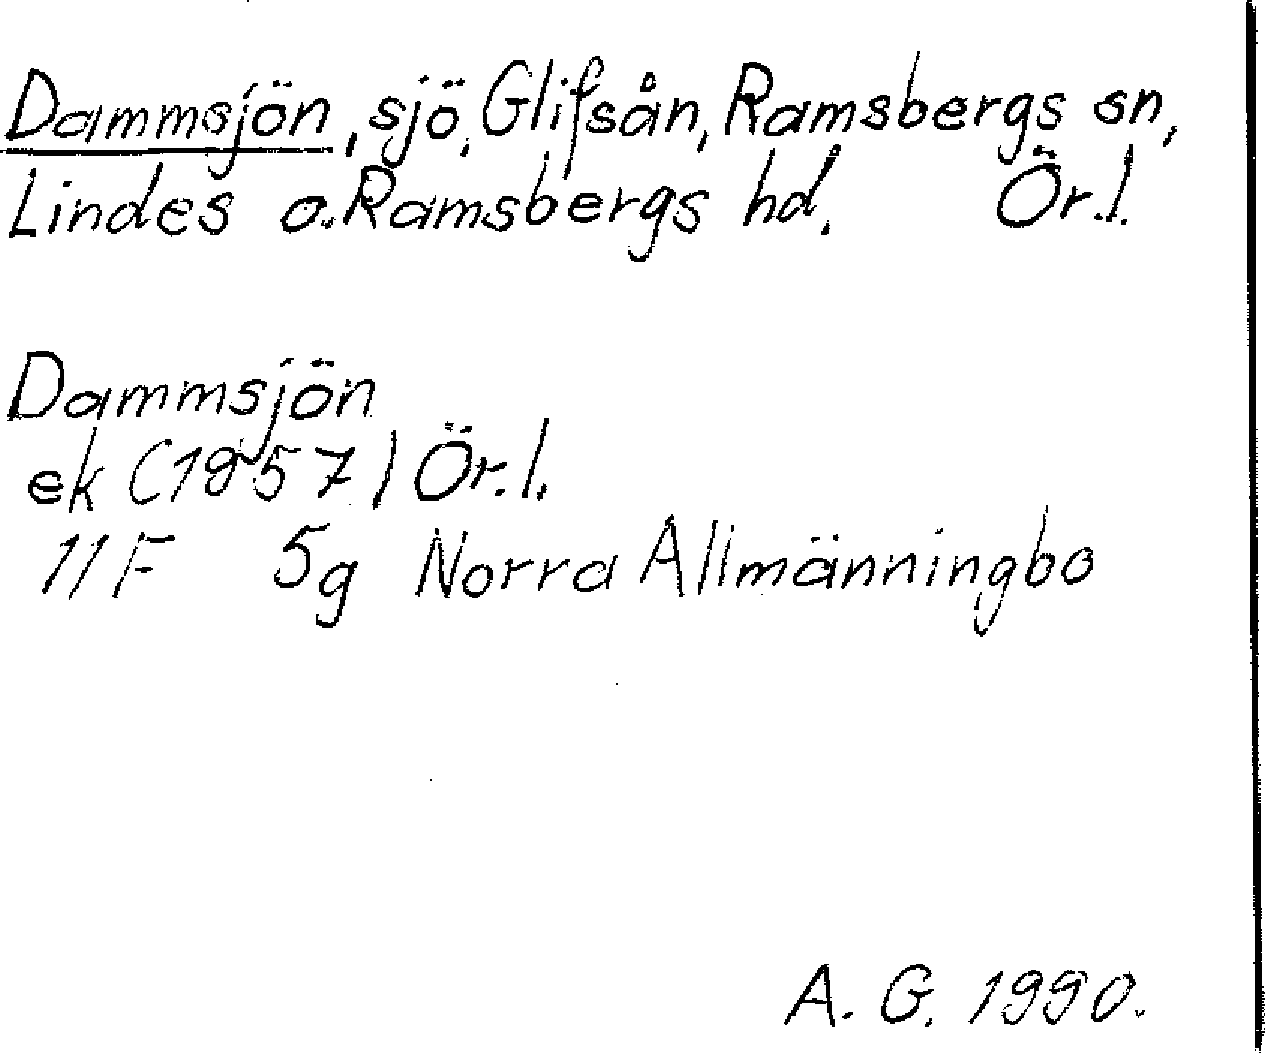 Dammsjön, sjö, Glifsån, Ramsbergs sn,
Lindes o. Ramsbergs hd. Ör.l.
Dammsjön
ek (1957) Ör.l.
11F 5g Norra Allmänningbo
A. G. 1990.